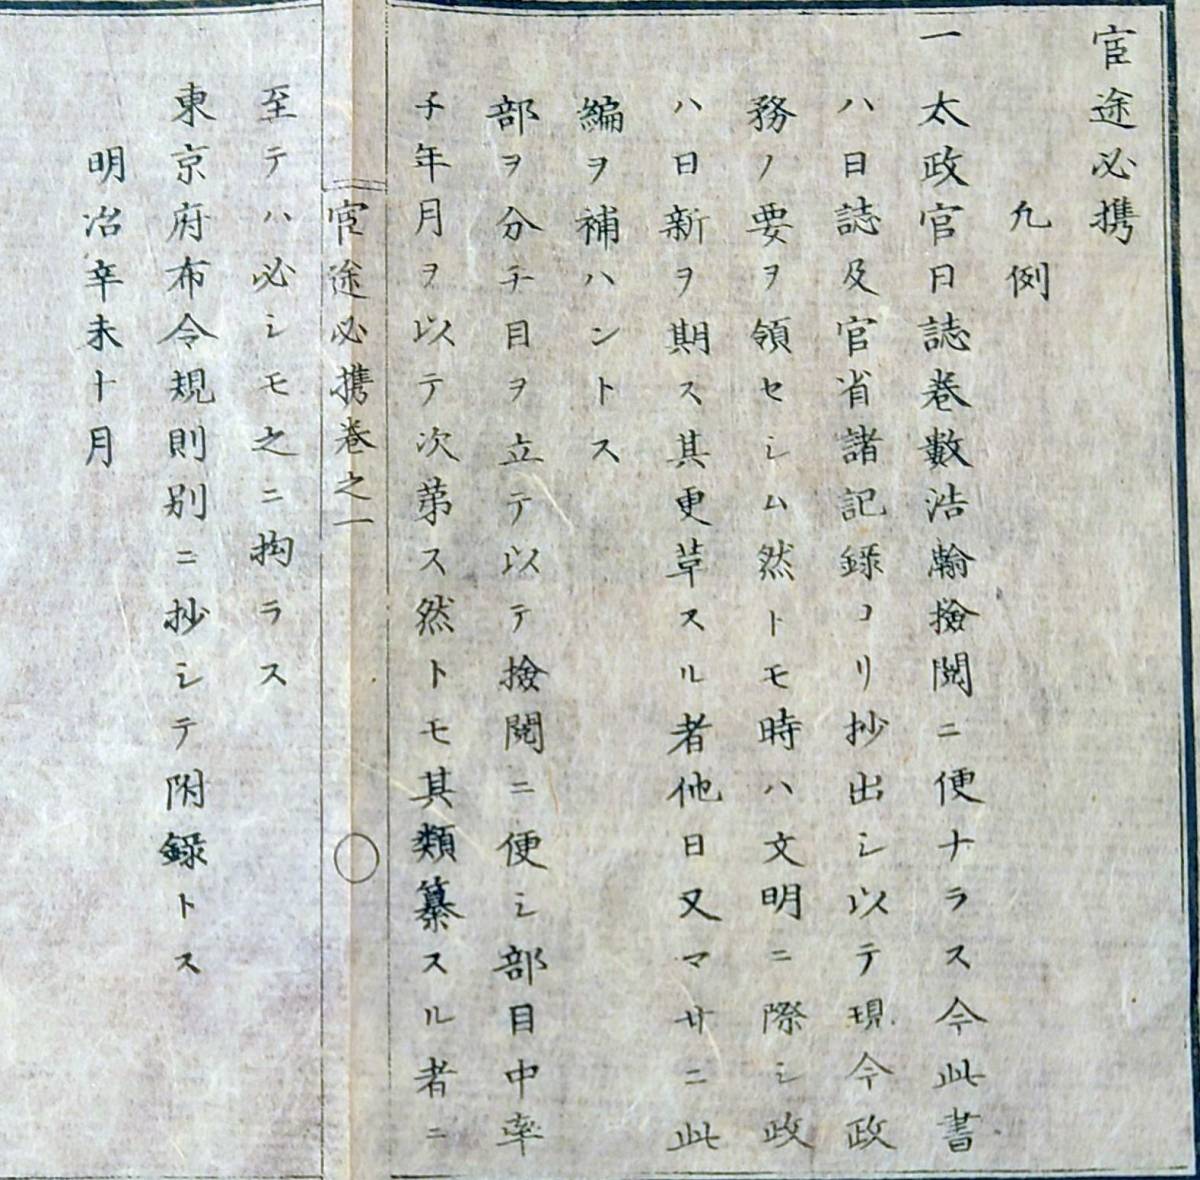 宦途必携
凡例
一太政官日誌巻數浩瀚撿閲ニ便ナラス今此書
ハ日誌及官省諸記録ヨリ抄出シ以テ現今政
務ノ要ヲ領セシム然トモ時ハ文明ニ際シ政
ハ日新ヲ期ス其更革スル者他日又マサニ此
編ヲ補ハントス
部ヲ分チ目ヲ立テ以テ撿閲ニ便シ部目中率
子年月ヲ以テ次第ス然トモ其類纂スル者ニ
宦途必携巻之一
至テハ必シモ之ニ拘ラス
東京府布令規則別ニ抄シテ附録トス
明治辛未十月